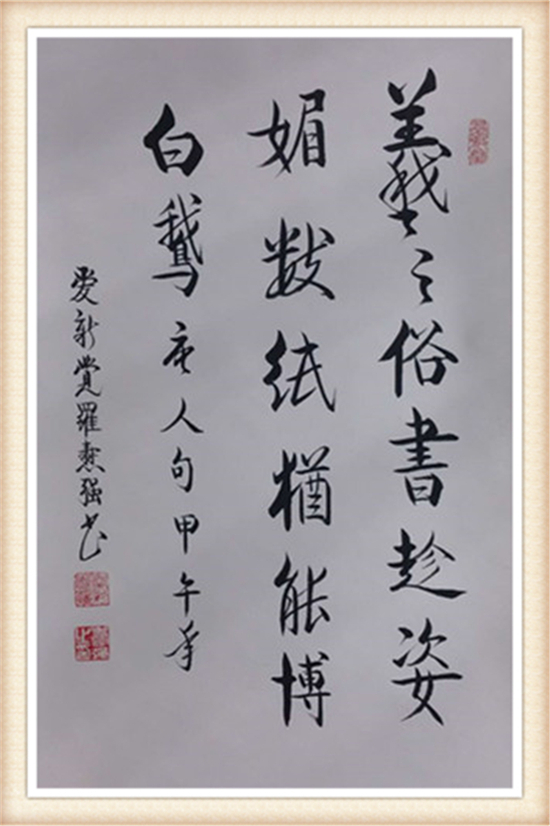 羲之俗書趁姿
媚数紙猶能博
白鵝唐人句甲午年
愛新覺羅强书